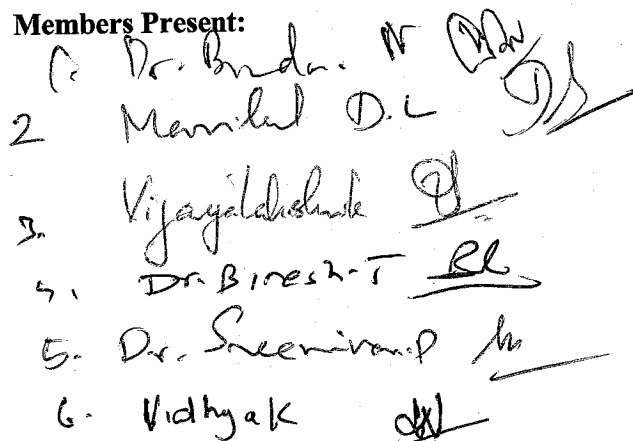 Members Present:
1. Dr. Binda. N
2 Manilal D.L
3. Vijayalakshmi
4. Dr. Biresh. T
5. Dr. Sreenivas. P
6. Vidhya K